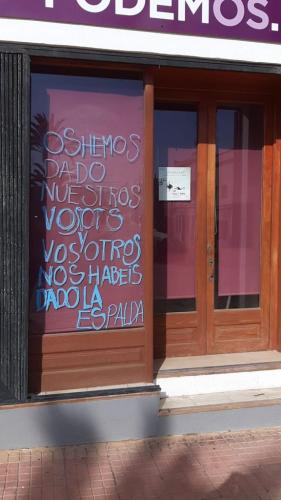 PODEMOS.
OS HEMOS
DADO
NUESTROS
VOSOTS
Y
VOSOTROS
NOS HABEIS
DADO LA
ESPALDA